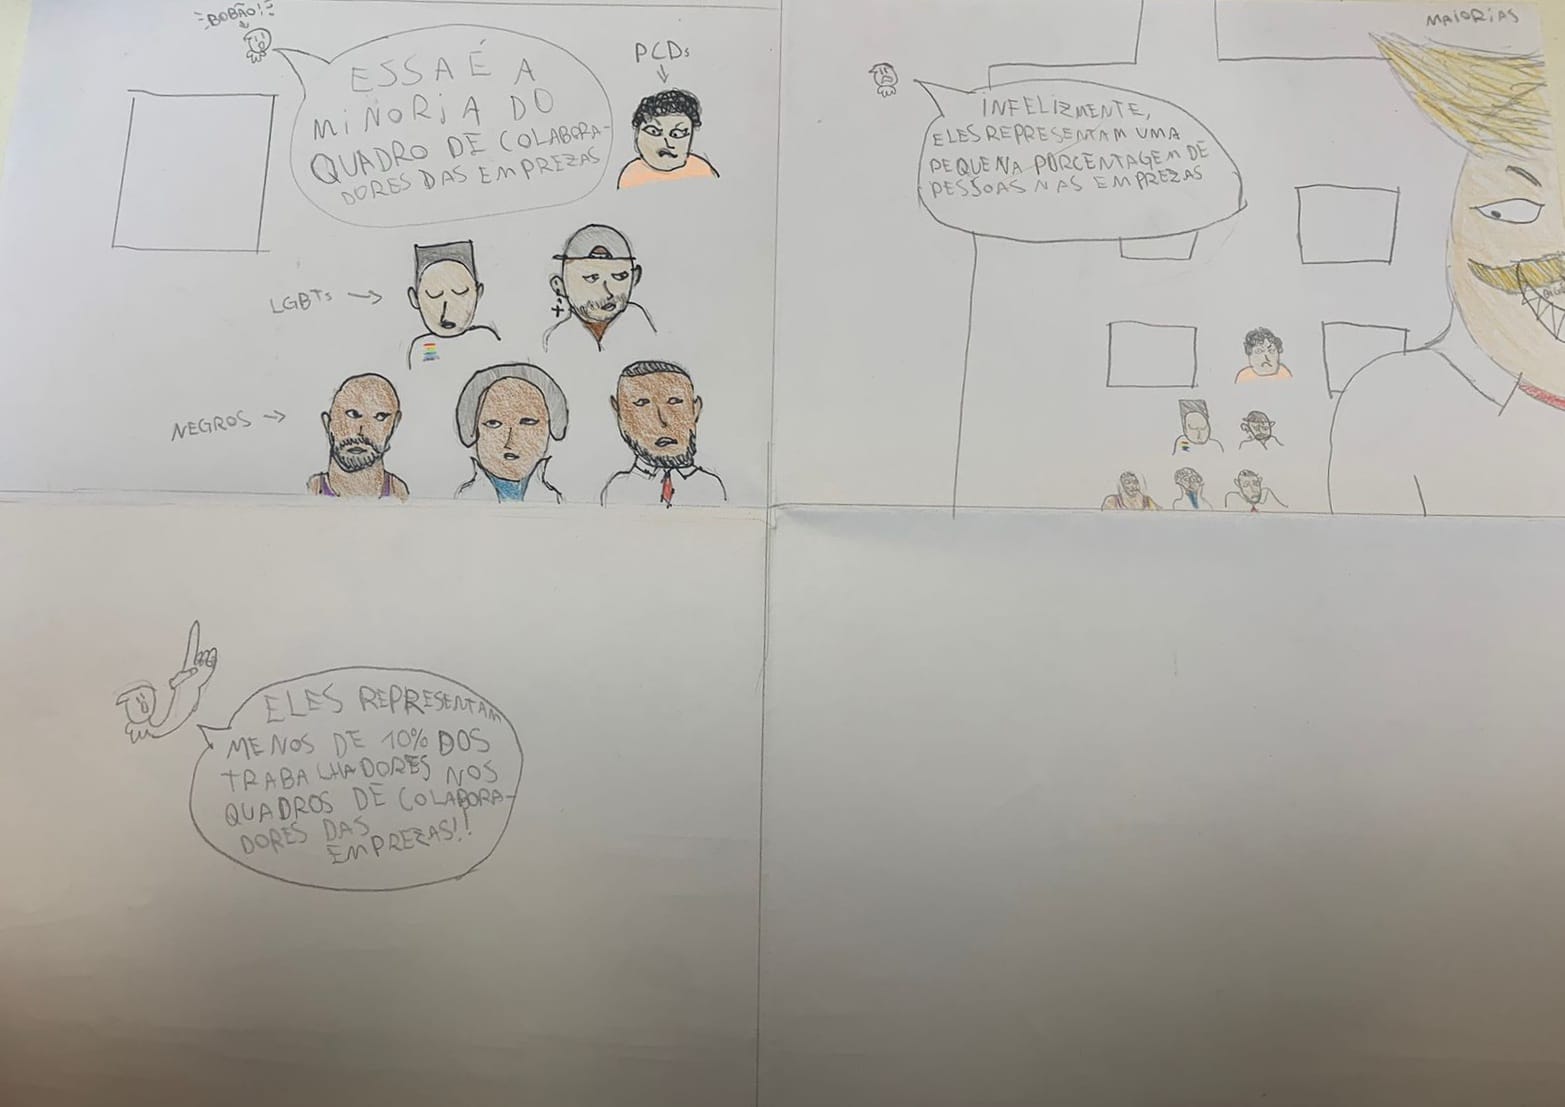 BOBÃO!
ESSA É A
MINORIA DO
QUADRO DE COLABORA-
DORES DAS EMPREZAS
PCDs
LGBTs
NEGROS
MAIORIAS
INFELIZMENTE,
ELES REPRESENTAM UMA
PEQUENA PORCENTAGEM DE
PESSOAS NAS EMPREZAS
ELES REPRESENTAM
MENOS DE 10% DOS
TRABALHADORES NOS
QUADROS DE COLABORA-
DORES DAS
EMPREZAS!!